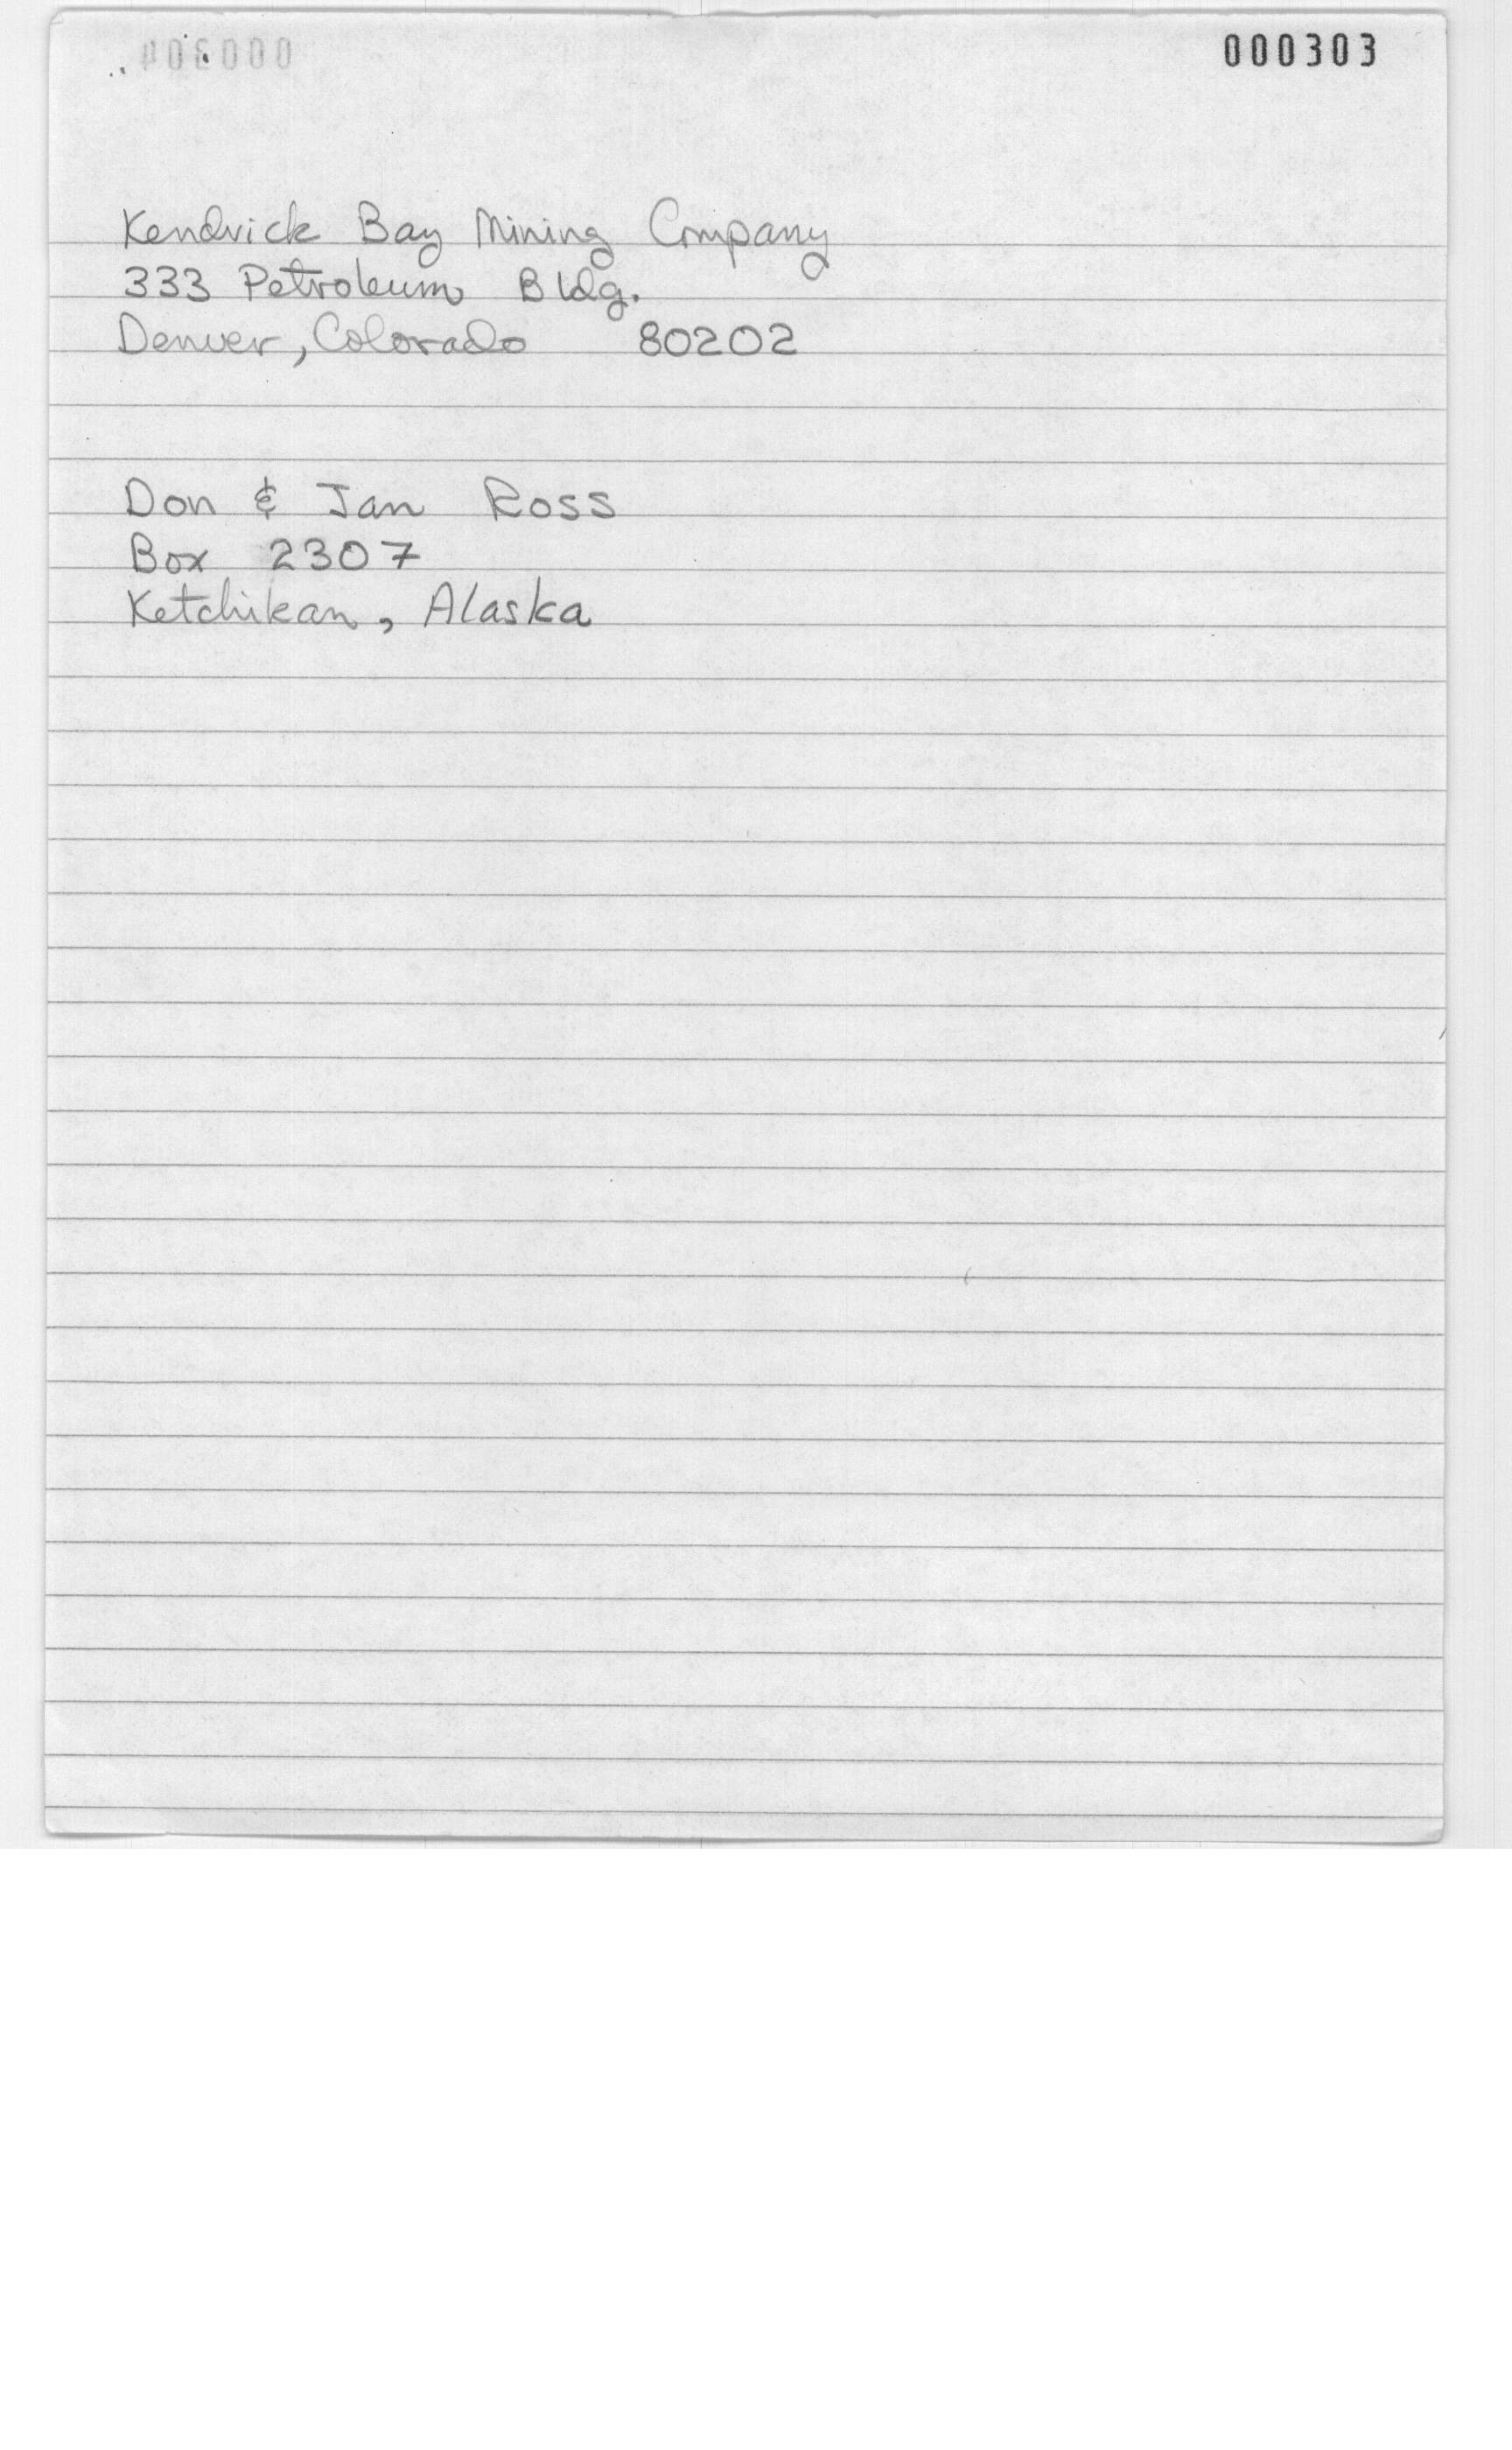 000303
Kendrick Bay Mining Company
333 Petroleum Bldg.
Denver, Colorado 80202
Don & Jan Ross
Box 2307
Ketchikan, Alaska